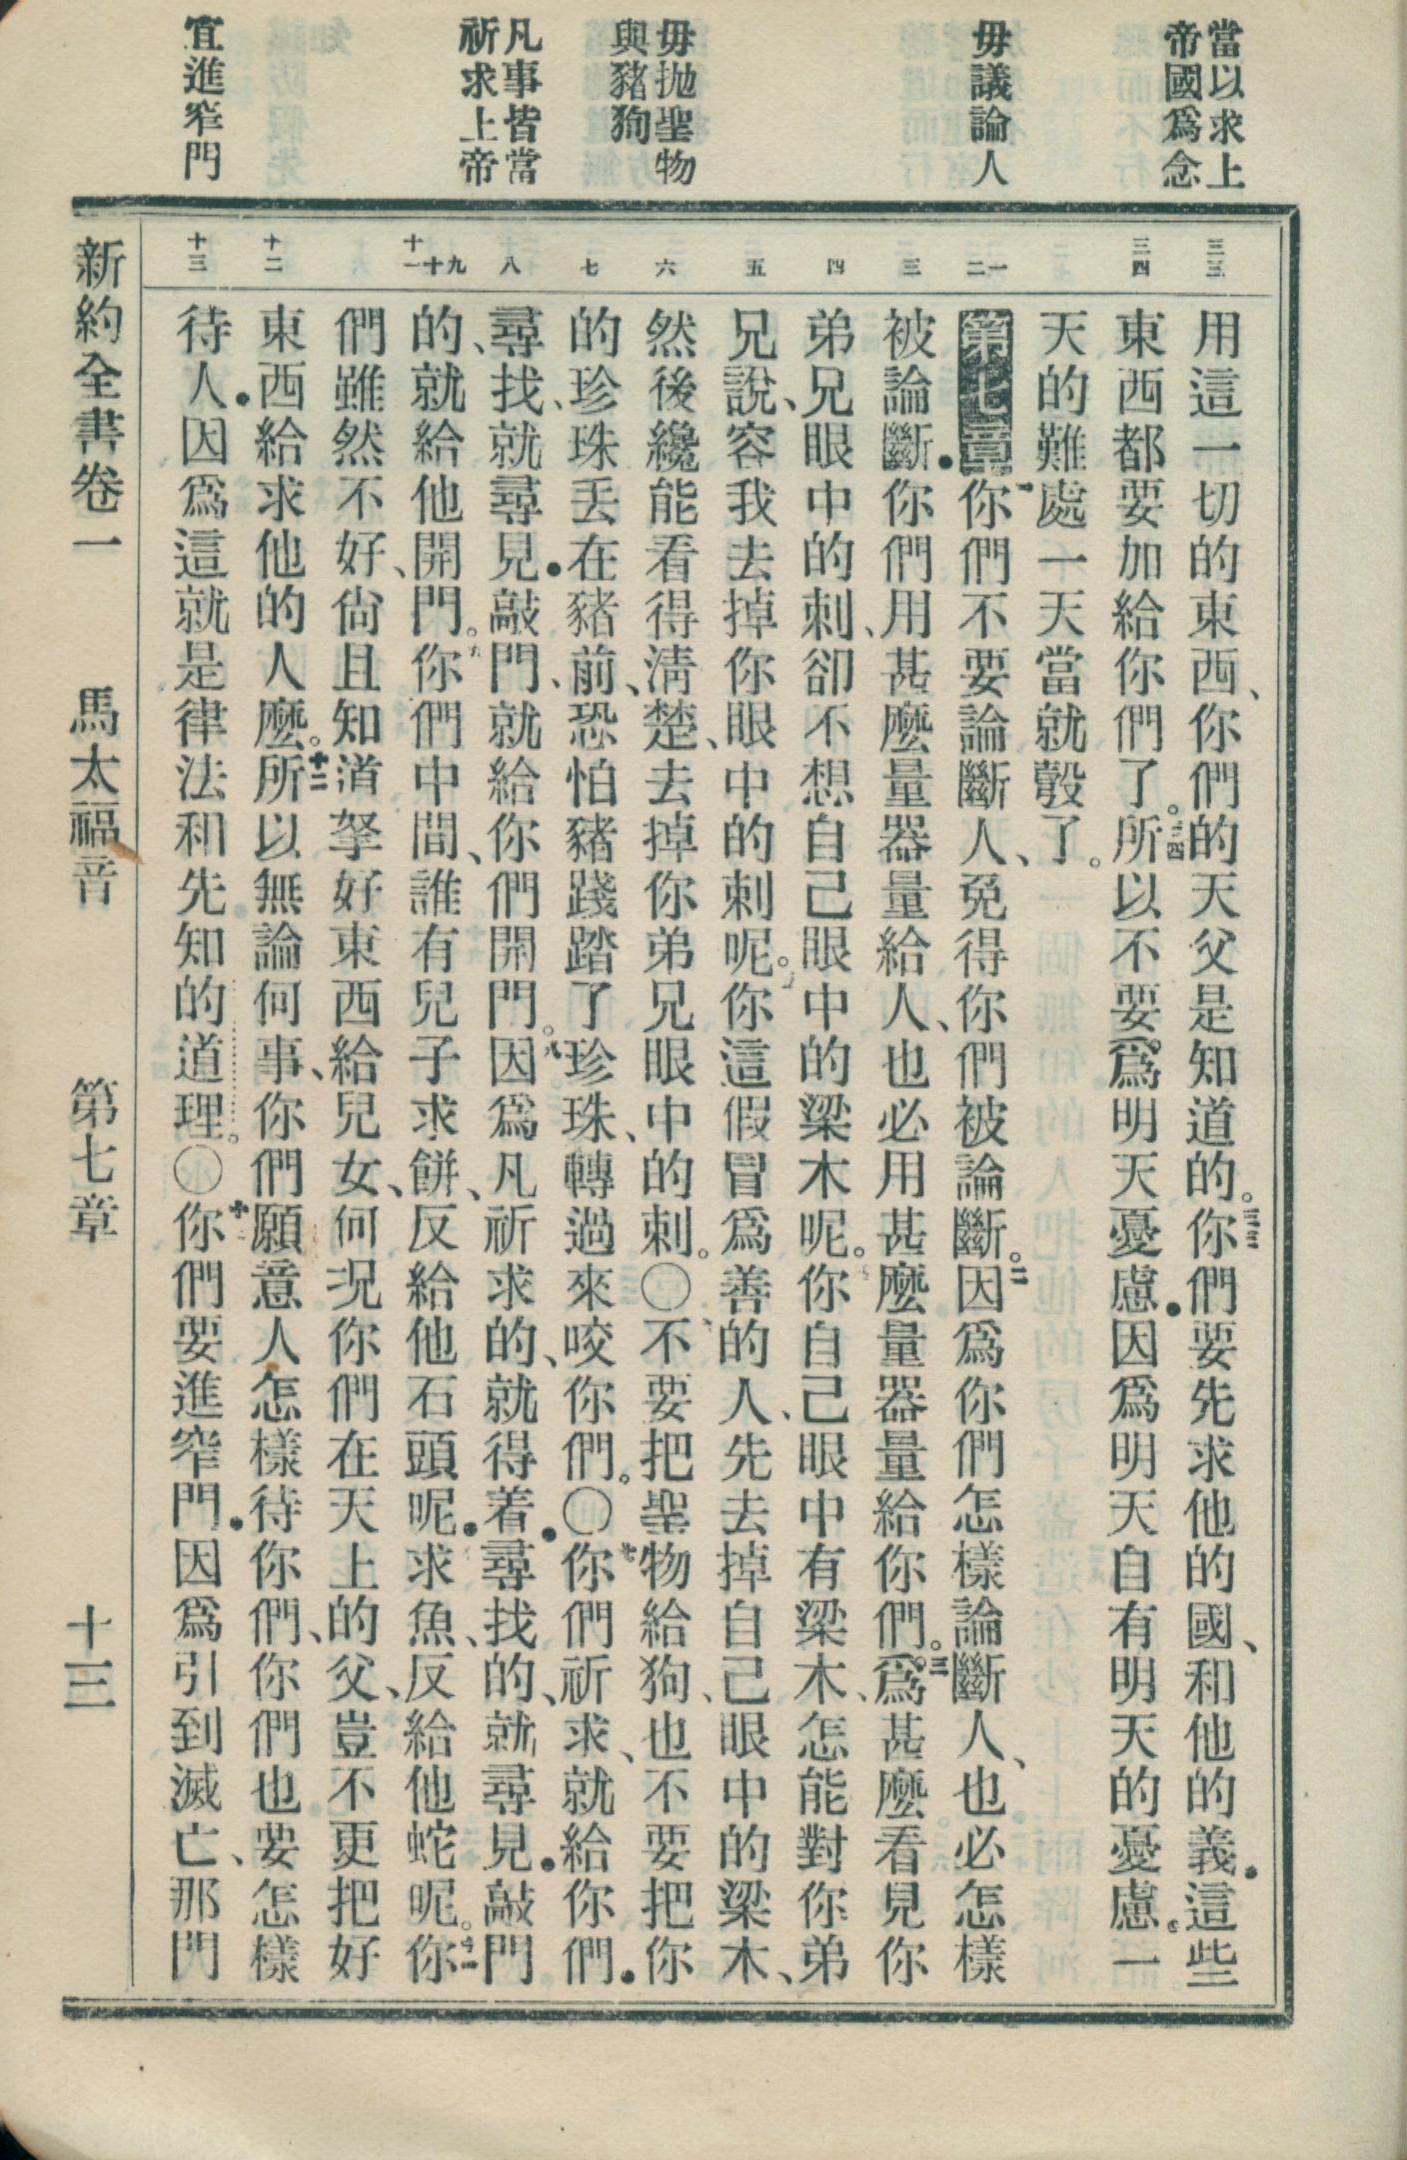 當以求上
帝國爲念
毋議論人
毋拋聖物
與豬狗
凡事皆當
祈求上帝
宜進窄門
三三
三四
一
二
三
四
五
六
七
八
九
十
十一
十二
十三
用這一切的東西、你們的天父是知道的。三三你們要先求他的國、和他的義．這些
東西都要加給你們了。三四所以不要爲明天憂慮．因爲明天自有明天的憂慮。一
天的難處一天當就彀了。
第七章一你們不要論斷人、免得你們被論斷。二因爲你們怎樣論斷人、也必怎樣
被論斷．你們用甚麼量器量給人、也必用甚麼量器量給你們。三爲甚麼看見你
弟兄眼中的刺、卻不想自己眼中的梁木呢。你自己眼中有梁木、怎能對你弟
兄說、容我去掉你眼中的刺呢。你這假冒爲善的人、先去掉自己眼中的梁木、
然後纔能看得淸楚、去掉你弟兄眼中的刺。〇不要把聖物給狗、也不要把你
的珍珠丟在豬前、恐怕豬踐踏了珍珠、轉過來咬你們。〇七你們祈求、就給你們．
尋找、就尋見．敲門、就給你們開門。八因爲凡祈求的、就得着．尋找的、就尋見．敲門
的、就給他開門。九你們中間、誰有兒子求餅、反給他石頭呢．求魚、反給他蛇呢。十一你
們雖然不好、尙且知道拏好東西給兒女、何况你們在天上的父、豈不更把好
東西給求他的人麼。十二所以無論何事、你們願意人怎樣待你們、你們也要怎樣
待人．因爲這就是律法和先知的道理。〇十三你們要進窄門．因爲引到滅亡、那門
新約全書卷一 馬太福音 第七章 十三